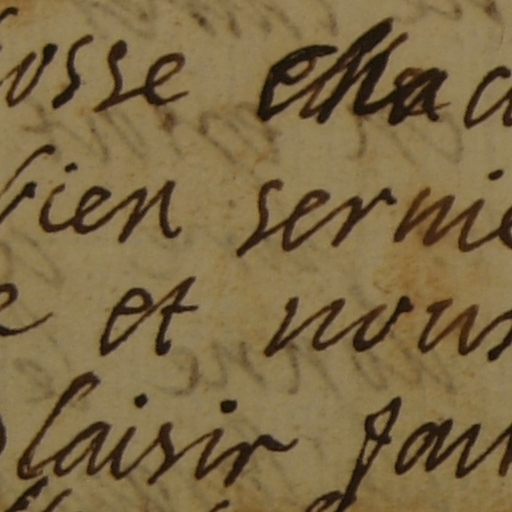 osse ella
bien servie
et nous
plaisir fau